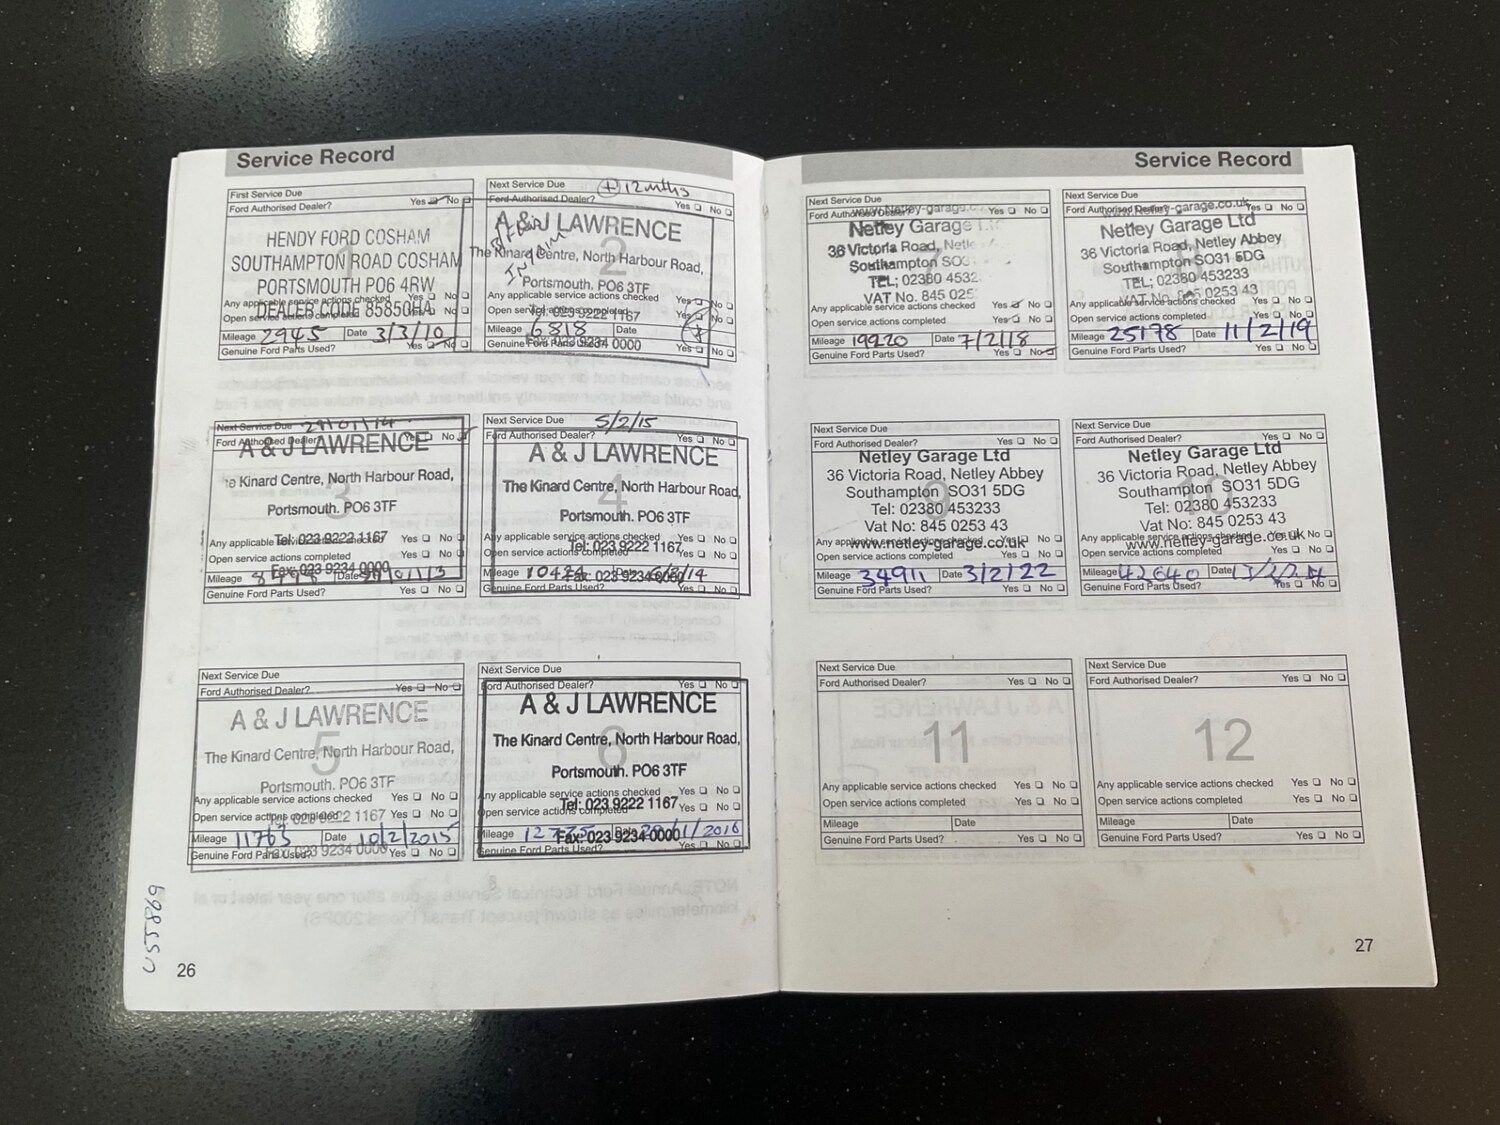 Service Record
First Service Due
Ford Authorised Dealer? Yes No
HENDY FORD COSHAM
SOUTHAMPTON ROAD COSHAM
PORTSMOUTH PO6 4RW
Any applicable service actions checked Yes No
DEALER CODE 85850HA
Open service actions completed Yes No
Mileage 2945 Date 3/3/10
Genuine Ford Parts Used? Yes No
Next Service Due + 12 mths
Ford Authorised Dealer? Yes No
A & J LAWRENCE
2
The Kinard Centre, North Harbour Road,
Portsmouth. PO6 3TF
Any applicable service actions checked Yes No
Open service actions completed Yes No
Tel: 023 9222 1167
Mileage 6818 Date
Fax: 023 9234 0000
Genuine Ford Parts Used? Yes No
Next Service Due
Ford Authorised Dealer? Yes No
A & J LAWRENCE
3
Kinard Centre, North Harbour Road,
Portsmouth. PO6 3TF
Tel: 023 9222 1167
Any applicable service actions checked Yes No
Open service actions completed Yes No
Fax: 023 9234 0000
Mileage Date
Genuine Ford Parts Used? Yes No
Next Service Due 5/2/15
Ford Authorised Dealer? Yes No
A & J LAWRENCE
4
The Kinard Centre, North Harbour Road,
Portsmouth. PO6 3TF
Any applicable service actions checked Yes No
Tel: 023 9222 1167
Open service actions completed Yes No
Mileage Date
Fax: 023 9234 0000
Genuine Ford Parts Used? Yes No
Next Service Due
Ford Authorised Dealer? Yes No
A & J LAWRENCE
5
The Kinard Centre, North Harbour Road,
Portsmouth. PO6 3TF
Any applicable service actions checked Yes No
Open service actions completed Yes No
Tel: 023 9222 1167
Mileage 11763 Date 10/2/2015
Genuine Ford Parts Used? Yes No
Fax: 023 9234 0000
Next Service Due
Ford Authorised Dealer? Yes No
A & J LAWRENCE
6
The Kinard Centre, North Harbour Road,
Portsmouth. PO6 3TF
Any applicable service actions checked Yes No
Tel: 023 9222 1167
Open service actions completed Yes No
Mileage Date /1/2016
Fax: 023 9234 0000
Genuine Ford Parts Used? Yes No
26
Service Record
Next Service Due
Ford Authorised Dealer? Yes No
www.Netley-garage.
Netley Garage
36 Victoria Road,
Southampton
TEL; 02380 4532
VAT No. 845 025
Any applicable service actions checked Yes No
Open service actions completed Yes No
Mileage 19920 Date 7/2/18
Genuine Ford Parts Used? Yes No
Next Service Due
Ford Authorised Dealer? Yes No
Netley Garage Ltd
36 Victoria Road, Netley Abbey
Southampton SO31 5DG
TEL; 02380 453233
VAT No. 845 0253 43
Any applicable service actions checked Yes No
Open service actions completed Yes No
Mileage 25178 Date 11/2/19
Genuine Ford Parts Used? Yes No
Next Service Due
Ford Authorised Dealer? Yes No
Netley Garage Ltd
36 Victoria Road, Netley Abbey
9
Southampton SO31 5DG
Tel: 02380 453233
Vat No: 845 0253 43
Any applicable service actions checked Yes No
www.netley-garage.co.uk
Open service actions completed Yes No
Mileage 34911 Date 3/2/22
Genuine Ford Parts Used? Yes No
Next Service Due
Ford Authorised Dealer? Yes No
Netley Garage Ltd
36 Victoria Road, Netley Abbey
10
Southampton SO31 5DG
Tel: 02380 453233
Vat No: 845 0253 43
Any applicable service actions checked Yes No
www.netley-garage.co.uk
Open service actions completed Yes No
Mileage 42640 Date
Genuine Ford Parts Used? Yes No
Next Service Due
Ford Authorised Dealer? Yes No
11
Any applicable service actions checked Yes No
Open service actions completed Yes No
Mileage Date
Genuine Ford Parts Used? Yes No
Next Service Due
Ford Authorised Dealer? Yes No
12
Any applicable service actions checked Yes No
Open service actions completed Yes No
Mileage Date
Genuine Ford Parts Used? Yes No
27